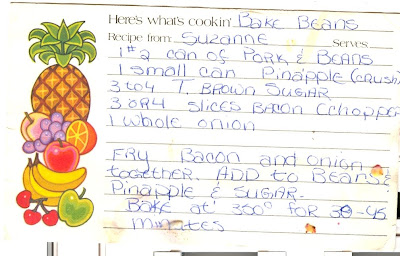 Here's what's cookin' Bake Beans
Recipe from: Suzanne Serves:
1 #2 can of Pork & Beans
1 small can Pinapple (crush
3 to 4 T. Brown Sugar
3 or 4 slices Bacon (choppe
1 whole onion
Fry Bacon and onion
together. Add to Beans &
Pinapple & Sugar.
Bake at 350° for 30-45
minutes